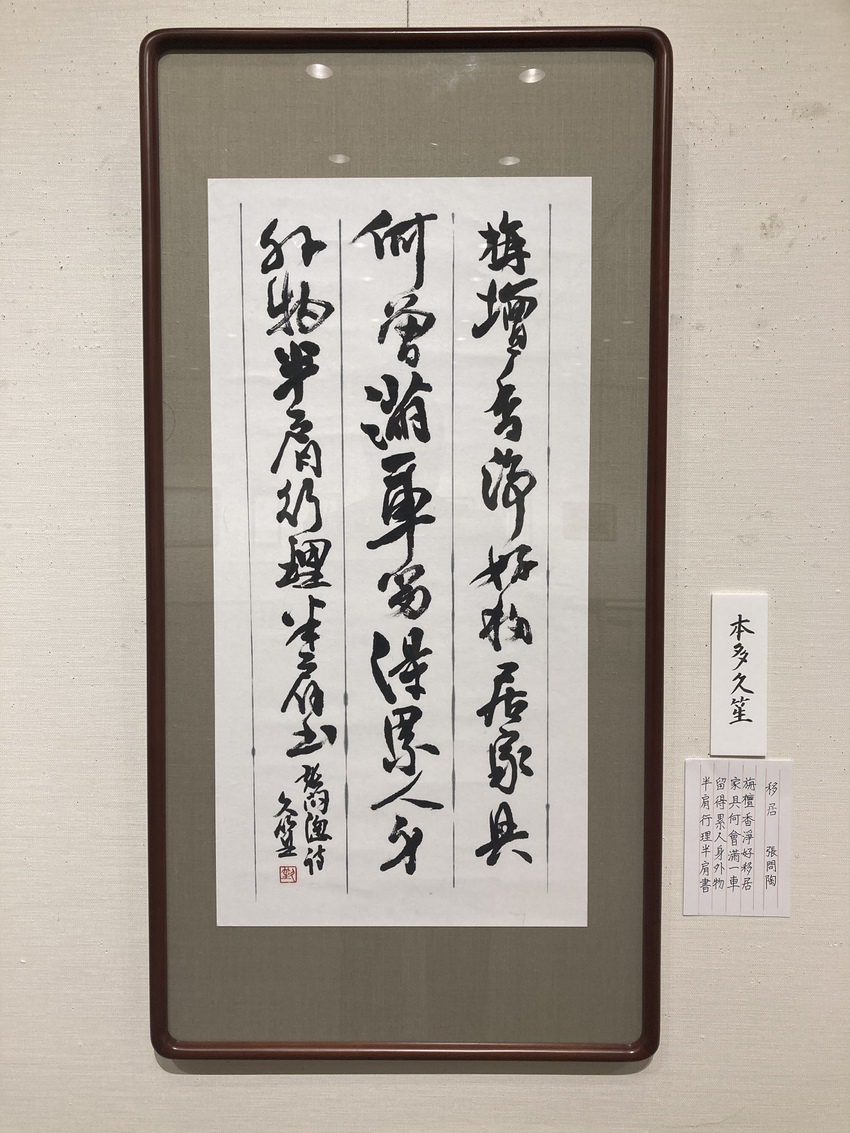 栴檀香淨好移居家具
何曾滿一車留得累人身
外物半肩行理半肩書
張問陶詩
久笙
本多久笙
移居 張問陶
旃檀香淨好移居
家具何會滿一車
留得累人身外物
半肩行理半肩書